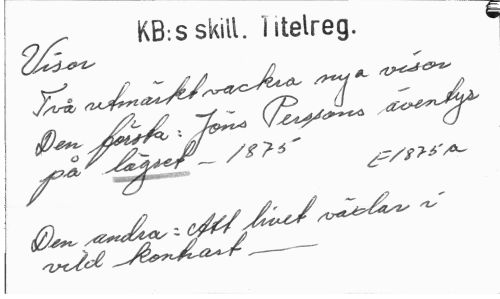 KB:s skill. Titelreg.
Visor
Två utmärkt vackra nya visor
Den första: Jöns Perssons äventyr
på lägret - 1875 E1875a
Den andra: Att livet växlar i
vild kontrast —